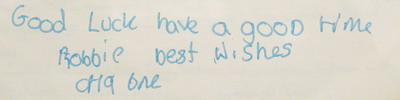 Good Luck have a good time
Robbie best wishes